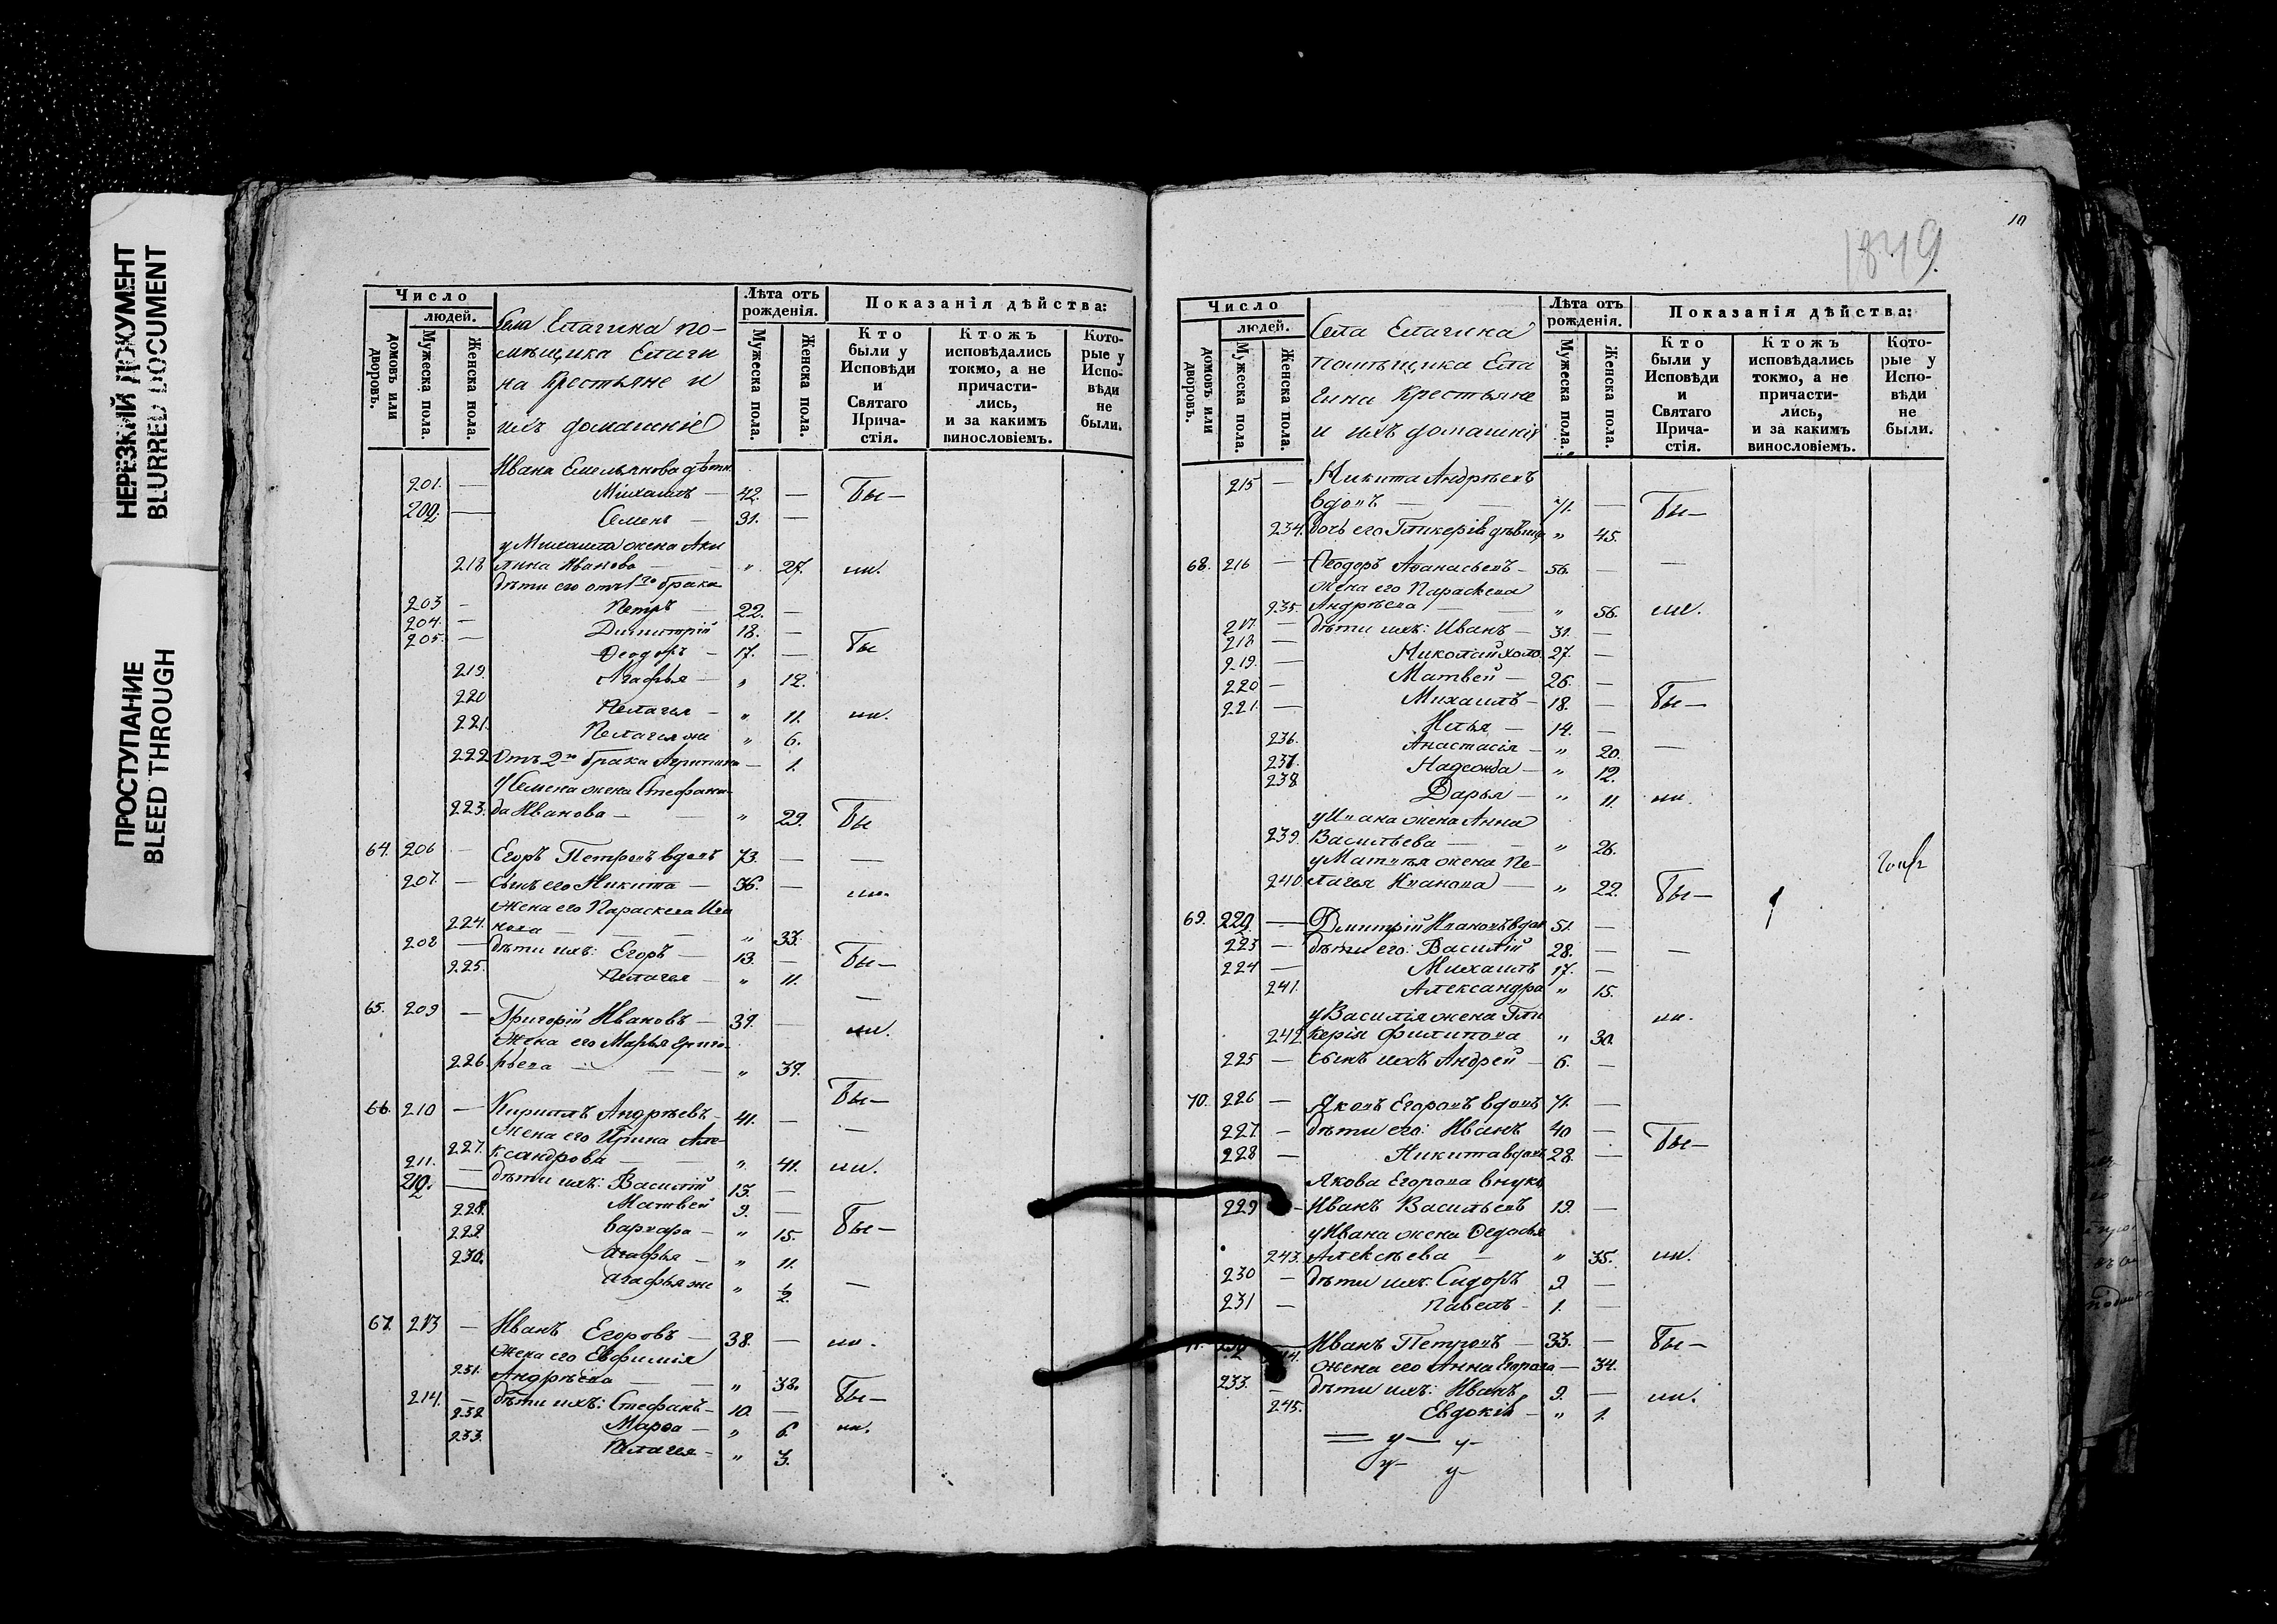 НЕРЕЗКИЙ ДОКУМЕНТ
BLURRED DOCUMENT
ПРОСТУПАНИЕ
BLEED THROUGH
Число
людей.
домовъ или дворовъ.
Мужеска пола.
Женска пола.
Села Елагина по-
мѣщика Елаги
на Крестьяне и
ихъ домашніе
Лѣта отъ рожденія.
Мужеска пола.
Женска пола.
Показанія дѣйства:
Кто были у Исповѣди и Святаго Прича-стія.
Ктожъ исповѣдались токмо, а не причасти-лись, и за какимъ винословіемъ.
Кото-рые у Испо-вѣди не были.
Ивана Емельянова дѣти
201. — Михаилъ — 42. — Бы—
202. — Семенъ — 31. —
у Михаила жена Аки
218 лина Иванова — " 27. ли.
дѣти его отъ 1го брака
203 — Петръ — 22. —
204. — Димитрій 18. —
205. — Ѳеодоръ — 17. — Бы
219. Агафья — " 12.
220 Пелагея — " 11. ли.
221. Пелагея же " 6.
222. Отъ 2го брака — 1.
У Семена жена Стефани-
223. да Иванова — " 29. Бы
64. 206 — Егоръ Петровъ вдовъ 73. — —
207. — Сынъ его Никита — 36. — ли.
Жена его Параскева Ива
224. нова — " 33.
208 — дѣти ихъ: Егоръ — 13. — Бы—
225. Пелагея — " 11.
65. 209 — Григорій Ивановъ — 39. — ли.
Жена его Марья Григо-
226. рьева — " 39.
Бы—
66. 210 — Кирилъ Андреевъ — 41. — —
Жена его Ирина Але-
227. ксандрова — " 41. ли.
211. — дѣти ихъ: Василій 13. —
212. — Матвей 9. —
228. Варвара — " 15. Бы—
229 Агафья — " 11.
230. Агафья же " ½. —
67. 213 — Иванъ Егоровъ — 38. — ли.
Жена его Евфимія
231. Андрѣева — " 38.
214. — дѣти ихъ: Стефанъ — 10. — Бы—
232 Марѳа — " 6. ли.
233. Пелагея — " 3.
10
1849.
Число
людей.
домовъ или дворовъ.
Мужеска пола.
Женска пола.
Села Елагина
Помѣщика Ела
гина Крестьяне
и ихъ домашнія
Лѣта отъ рожденія.
Мужеска пола.
Женска пола.
Показанія дѣйства:
Кто были у Исповѣди и Святаго Прича-стія.
Ктожъ исповѣдались токмо, а не причасти-лись, и за какимъ винословіемъ.
Кото-рые у Испо-вѣди не были.
215 — Никита Андрѣевъ
вдовъ — 71. — Бы—
234. дочь его Гликерія дѣвица " 45.
68. 216 — Ѳеодоръ Аѳанасьевъ — 56. — —
Жена его Параскева
235. Андрѣева — " 56. ли.
217. — дѣти ихъ: Иванъ — 31. —
218 — Николай холо. 27. —
219. — Матвей — 26. —
220 — Михаилъ — 18. — Бы—
221. — Илья — 14. —
236. Анастасія — " 20. —
237. Надежда — " 12.
238 Дарья — " 11. ли.
у Ивана жена Анна
239. Васильева — " 26.
у Матвѣя жена Пе-
240. лагея Иванова — " 22. Бы—
69. 222 — Дмитрій Ивановъ вдов 51. —
223 — дѣти его: Василій 28. — —
224 — Михаилъ 17. —
241. Александра " 15.
у Василія жена Гли ли.
242. керія Филипова " 30.
225 — Сынъ ихъ Андрей — 6. —
70. 226 — Яковъ Егоровъ вдовъ 71. —
227 — дѣти его: Иванъ 40 — Бы—
228 — Никита вдовъ 28. —
Якова Егорова внукъ
229 — Иванъ Васильевъ 19. —
у Ивана жена Ѳедосья
243. Алексѣева — " 35. ли.
230 — дѣти ихъ: Сидоръ 9 —
231 — Павелъ — 1. —
Иванъ Петровъ — 33. — Бы—
жена его Анна Егорова — 34.
233. — дѣти ихъ: Иванъ 9. — ли.
245. Евдокія — " 1.